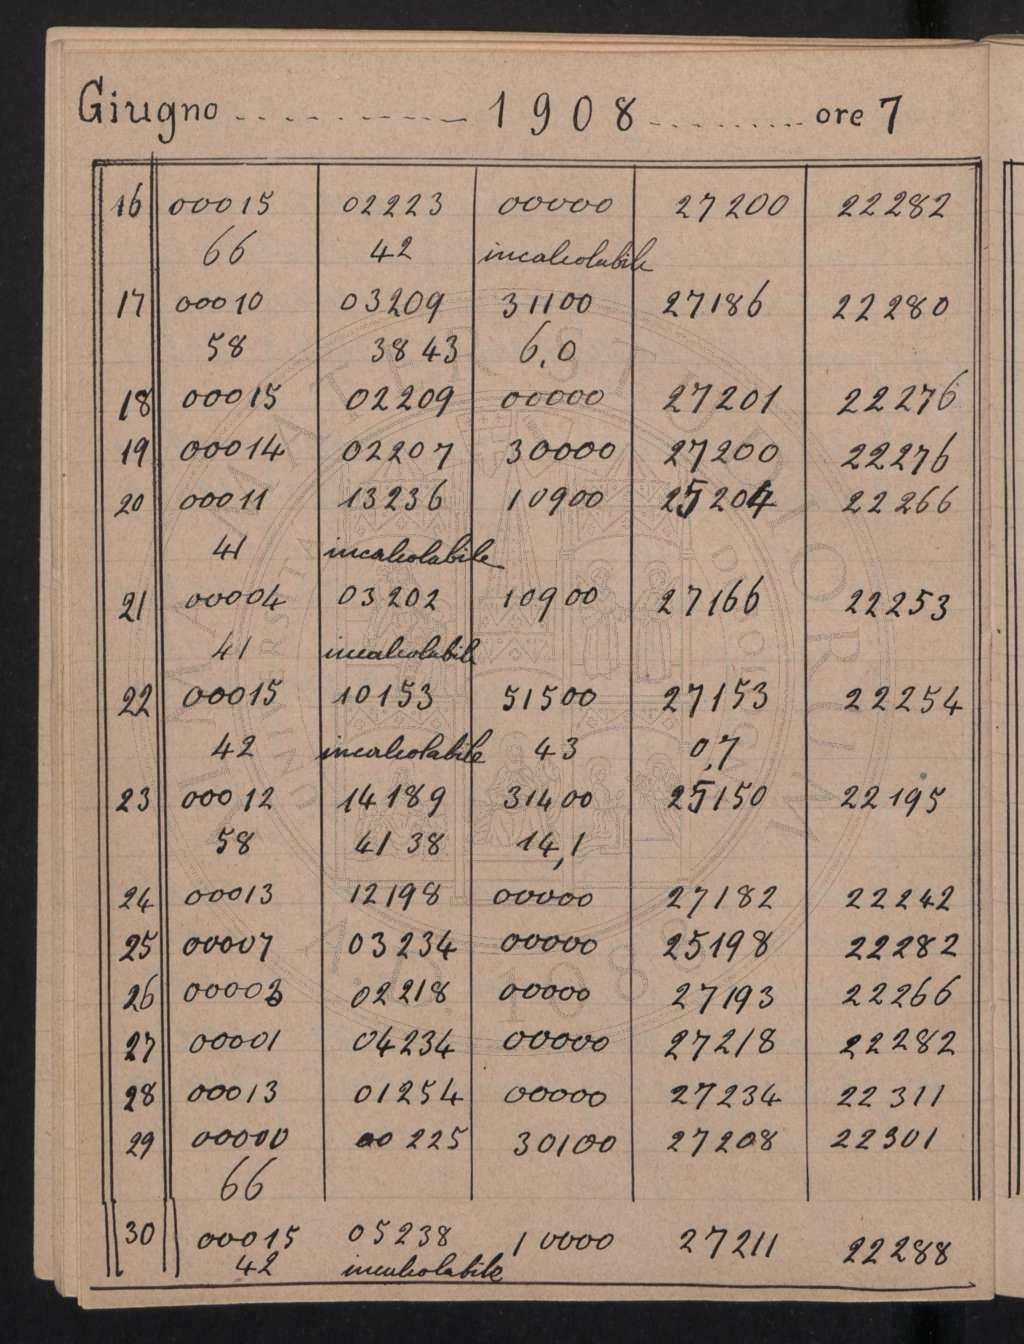 Giugno 1908 ore 7
16 00015 02223 00000 27200 22282
66 42 incalcolabile
17 00010 03209 31100 27186 22280
58 3843 6,0
18 00015 02209 00000 27201 22276
19 00014 02207 30000 27200 22276
20 00011 13236 10900 25204 22266
41 incalcolabile
21 00004 03202 10900 27166 22253
41 incalcolabile
22 00015 10153 51500 27153 22254
42 incalcolabile 43 0,7
23 00012 14189 31400 25150 22195
58 4138 14,1
24 00013 12198 00000 27182 22242
25 00007 03234 00000 25198 22282
26 00003 02218 00000 27193 22266
27 00001 04234 00000 27218 22282
28 00013 01254 00000 27234 22311
29 00000 00225 30100 27208 22301
66
30 00015 05238 10000 27211 22288
42 incalcolabile
ALMA MATER STUDIORUM
A.D. 1088